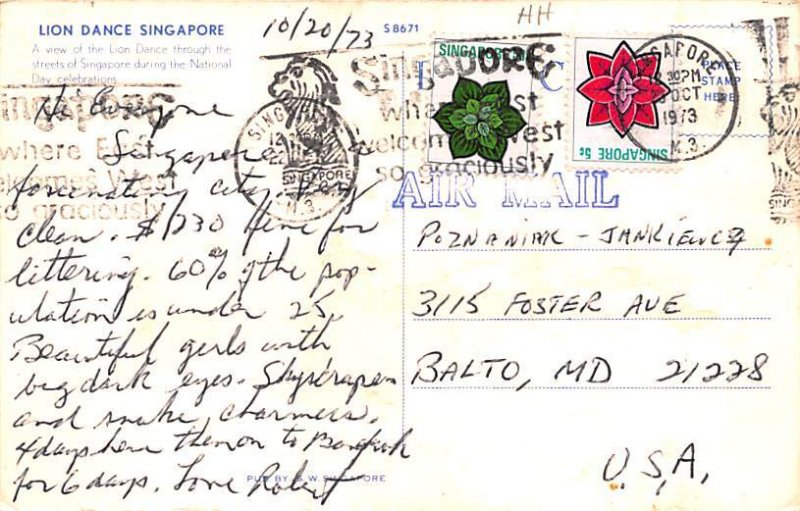 LION DANCE SINGAPORE
A view of the Lion Dance through the
streets of Singapore during the National
Day celebrations.
10/20/73
S 8671
HH
SINGAPORE
SINGAPORE 5c
PLACE
STAMP
HERE
Singapore
where East
welcomes West
so graciously
SINGAPORE
OCT
1973
AIR MAIL
Hi Everyone
Singapore
city. Very
clean. $ 230 fine for
littering. 60% of the pop-
ulation is under 25.
Beautiful girls with
big dark eyes. Skyscrapers
and snake charmers.
4 days here then on to Bangkok
for 6 days. Love Robert
PUB BY S.W. SINGAPORE
POZNANIAK - JANKIEWCZ
3115 FOSTER AVE
BALTO, MD 21228
U.S.A.